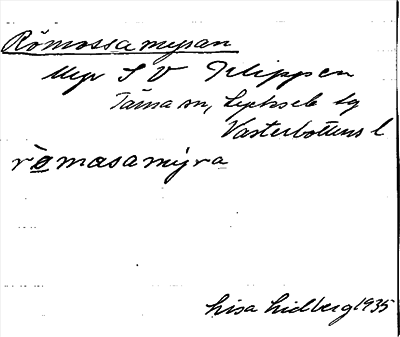 Römossamyran
Myr S V Filippsen
Tärna sn, Lycksele lg
Västerbottens l
römasamýra
Lisa Lidberg 1935